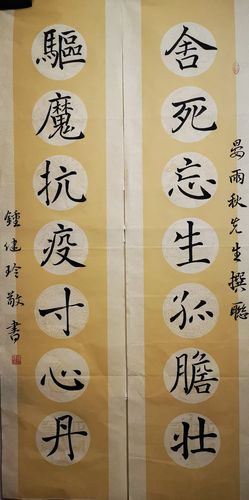 晏雨秋先生撰聯
舍死忘生孤膽壯
驅魔抗疫寸心丹
鍾健玲敬書